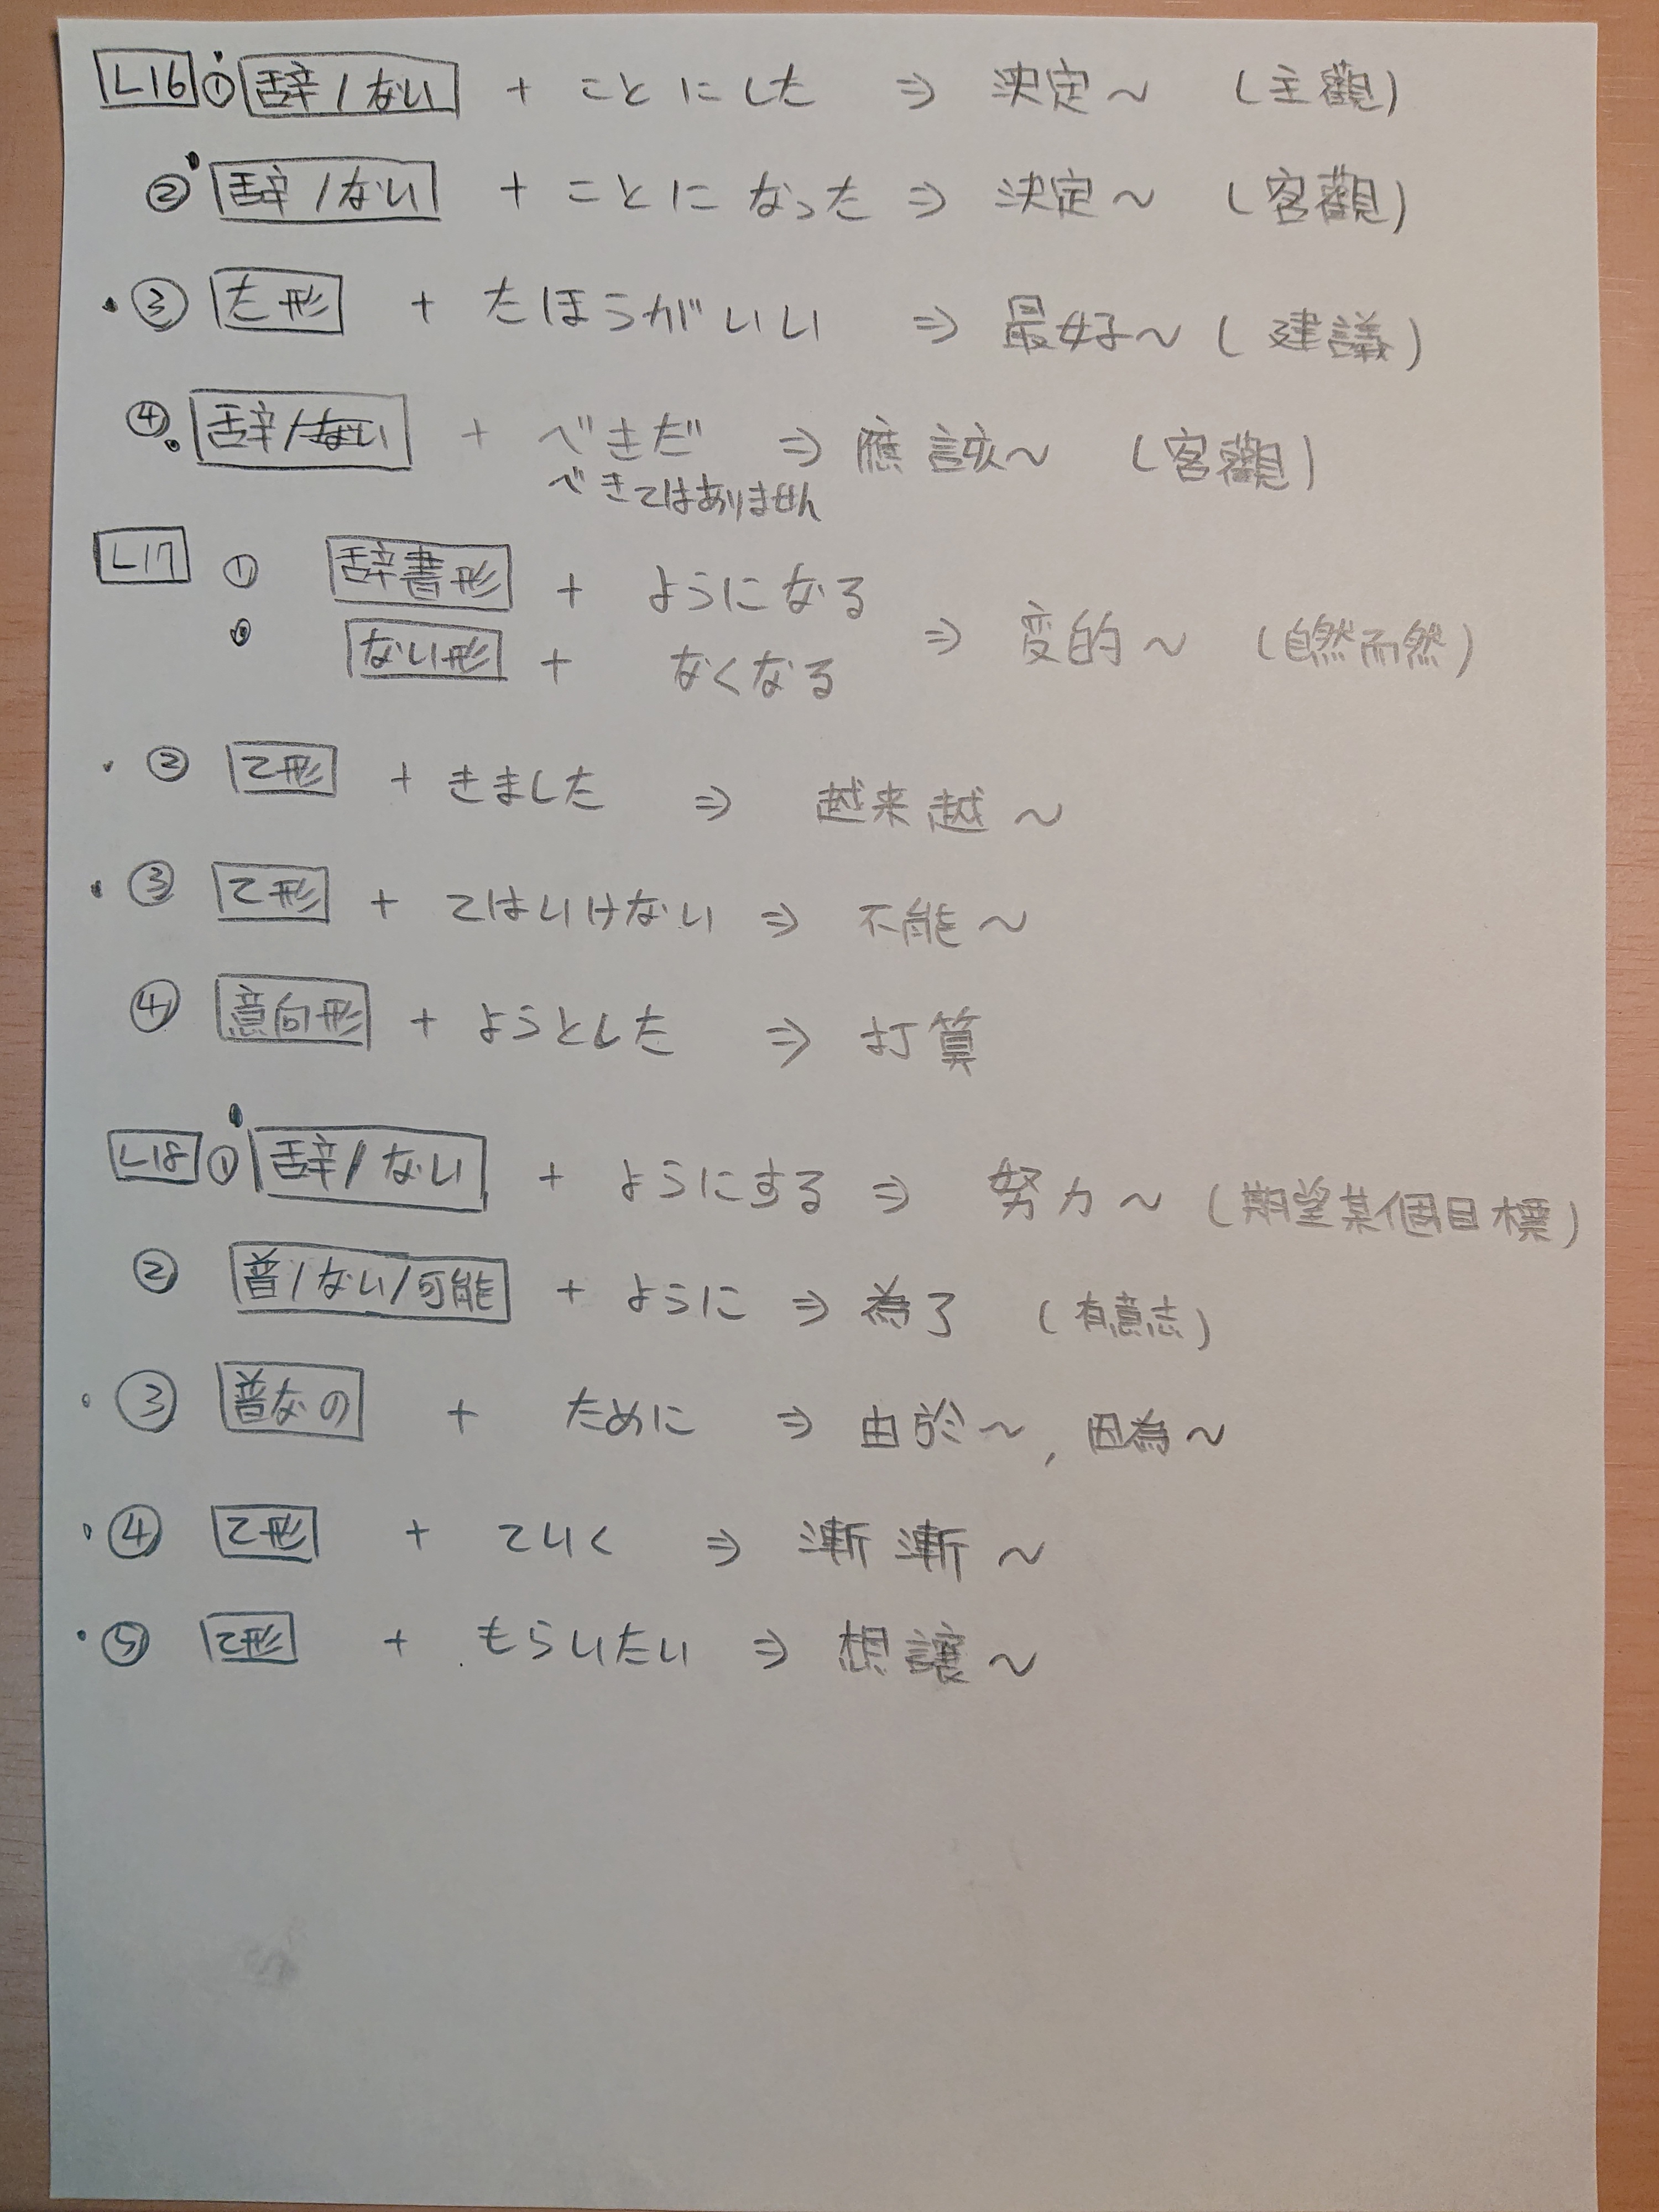 L16 ① 辞/ない + ことにした ⇒ 決定～ (主觀)
② 辞/ない + ことになった ⇒ 決定～ (客觀)
③ た形 + たほうがいい ⇒ 最好～ (建議)
④ 辞/ない + べきだ ⇒ 應該～ (客觀)
べきではありません
L17 ① 辞書形 + ようになる
ない形 + なくなる ⇒ 变的～ (自然而然)
② て形 + きました ⇒ 越来越～
③ て形 + てはいけない ⇒ 不能～
④ 意向形 + ようとした ⇒ 打算
L18 ① 辞/ない + ようにする ⇒ 努力～ (期望某個目標)
② 普/ない/可能 + ように ⇒ 為了 (有意志)
③ 普なの + ために ⇒ 由於～, 因為～
④ て形 + ていく ⇒ 漸漸～
⑤ て形 + もらいたい ⇒ 想讓～